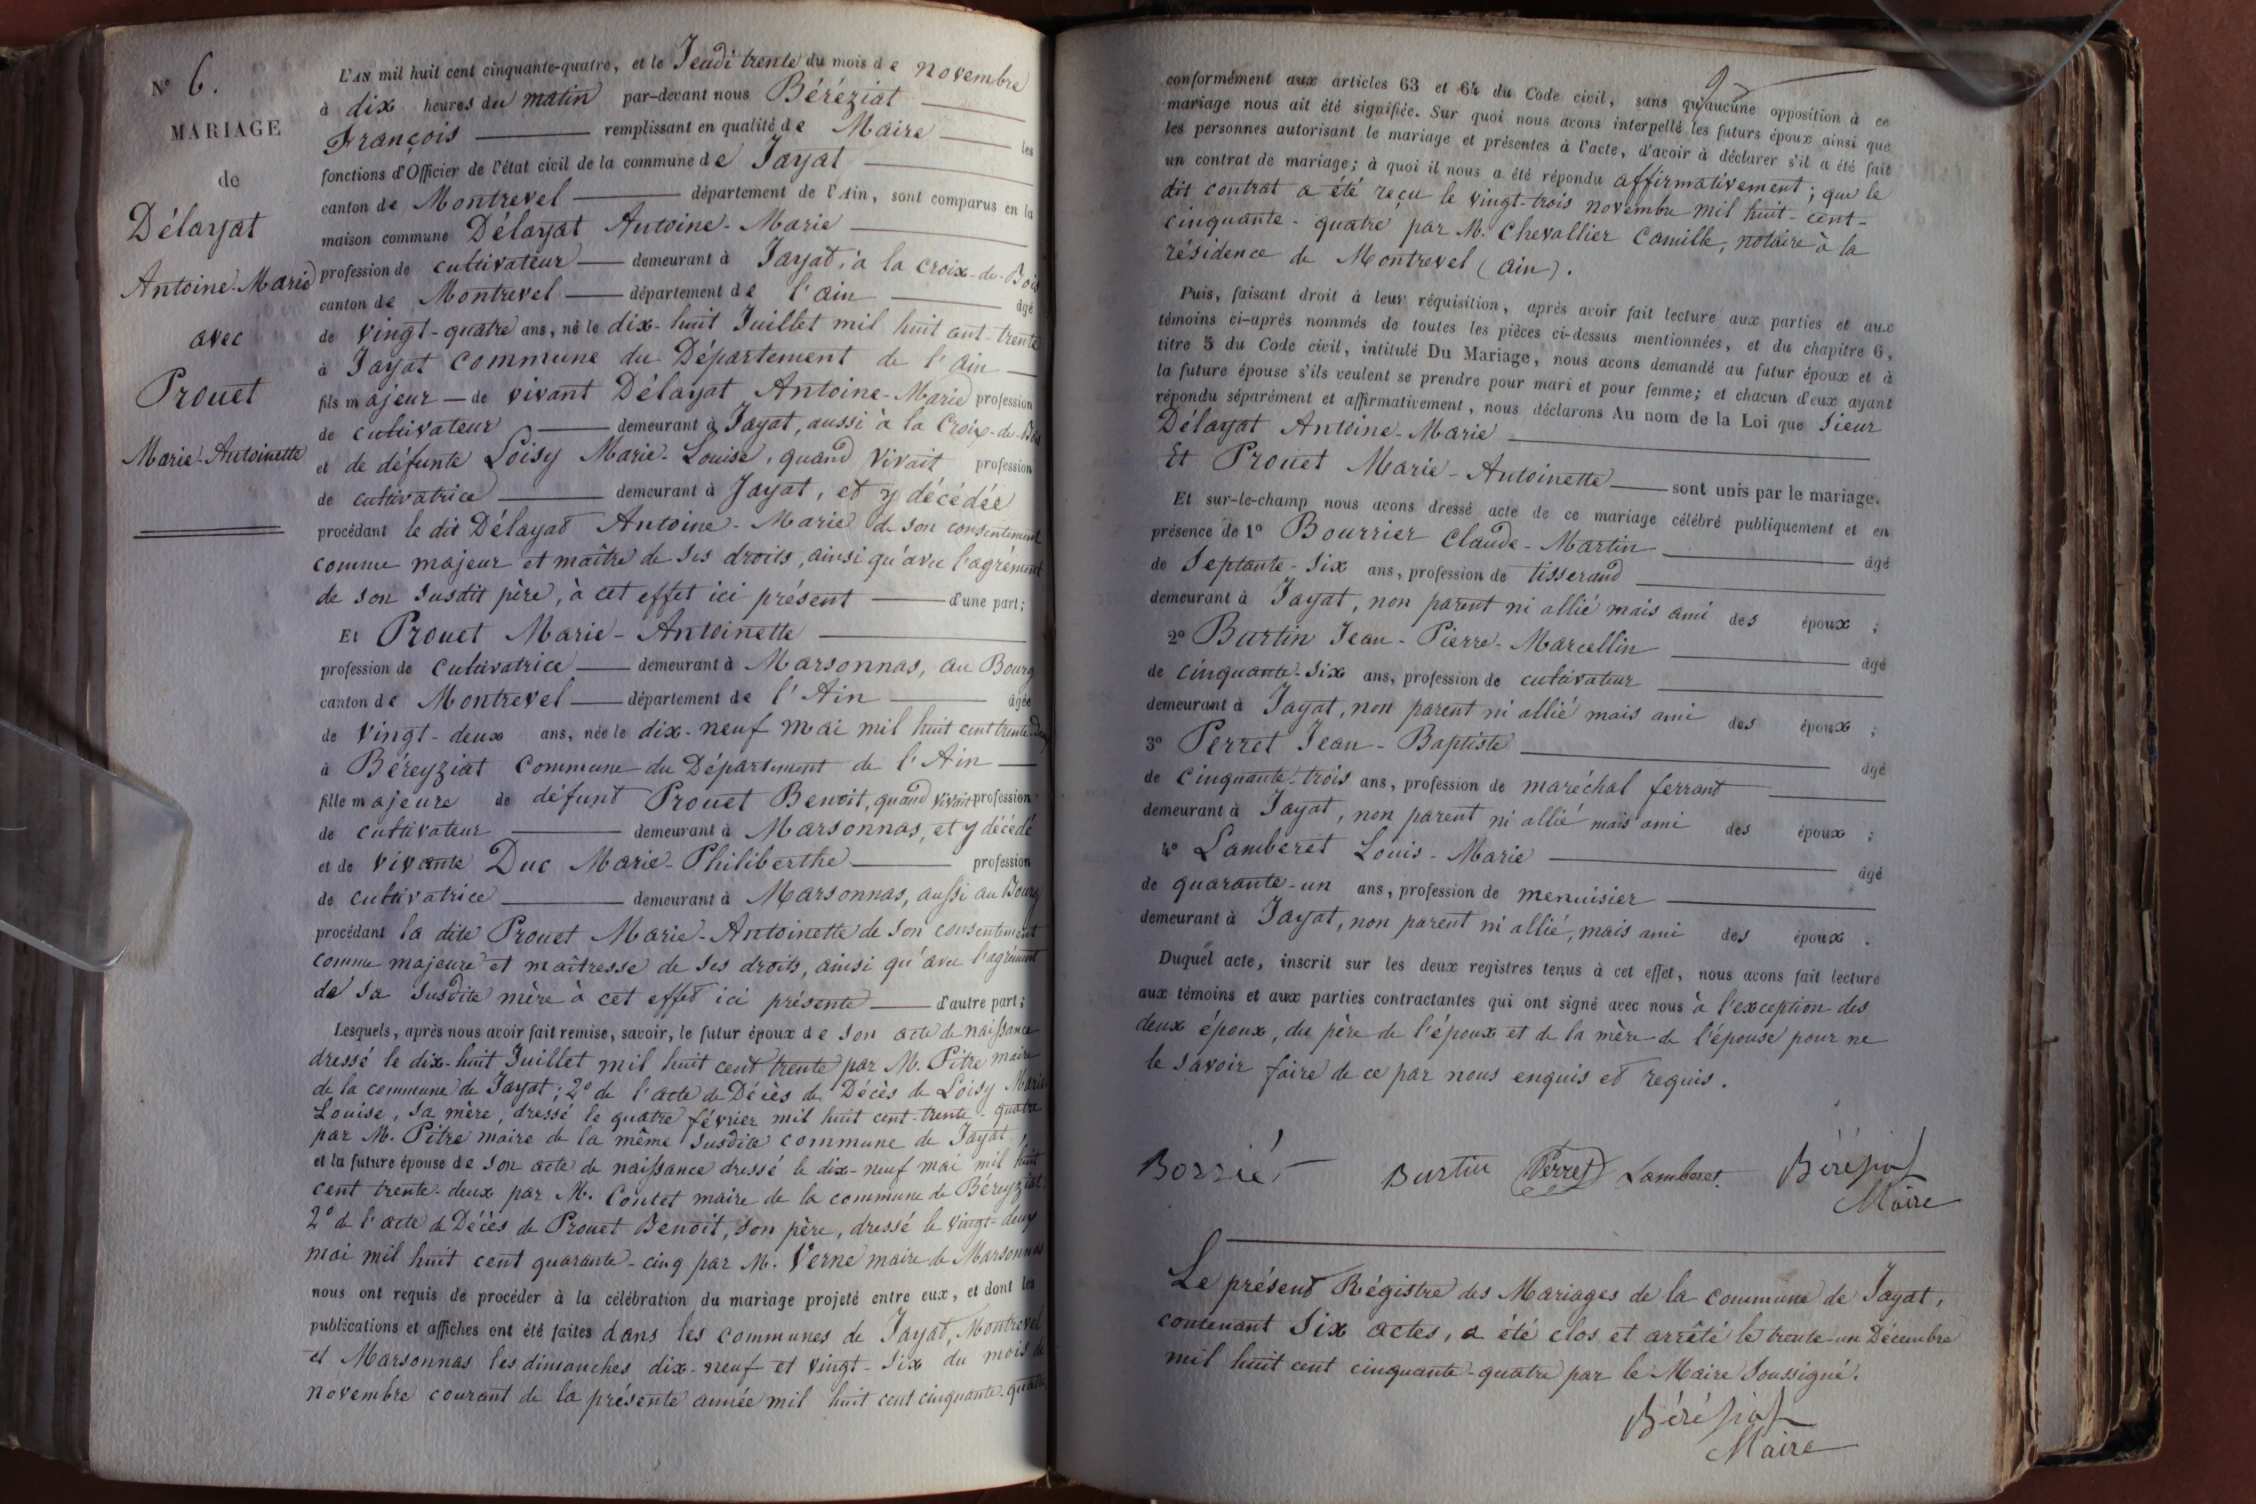 N° 6.
MARIAGE
de
Délayat
Antoine-Marie
avec
Prouet
Marie-Antoinette
L'AN mil huit cent cinquante-quatre, et le Jeudi trente du mois de novembre
à dix heures du matin par-devant nous Béréziat
François remplissant en qualité de Maire les
fonctions d'Officier de l'état civil de la commune de Jayat
canton de Montrevel département de l'Ain, sont comparus en la
maison commune Délayat Antoine-Marie
profession de cultivateur demeurant à Jayat, à la croix-de-Bois
canton de Montrevel département de l'ain âgé
de vingt-quatre ans, né le dix-huit Juillet mil huit cent-trente
à Jayat commune du Département de l'ain
fils majeur de vivant Délayat Antoine-Marie profession
de cultivateur demeurant à Jayat, aussi à la Croix-de-Bois
et de défunte Loisy Marie-Louise, quand vivait profession
de cultivatrice demeurant à Jayat, et y décédée
procédant le dit Délayat Antoine-Marie de son consentement
comme majeur et maître de ses droits, ainsi qu'avec l'agrément
de son susdit père, à cet effet ici présent d'une part;
ET Prouet Marie-Antoinette
profession de cultivatrice demeurant à Marsonnas, au Bourg
canton de Montrevel département de l'Ain âgée
de vingt-deux ans, née le dix-neuf mai mil huit cent trente-deux
à Béreyziat commune du Département de l'Ain
fille majeure de défunt Prouet Benoit, quand vivait profession
de cultivateur demeurant à Marsonnas, et y décédé
et de vivante Duc Marie-Philiberthe profession
de cultivatrice demeurant à Marsonnas, aussi au Bourg
procédant la dite Prouet Marie-Antoinette de son consentement
comme majeure et maîtresse de ses droits, ainsi qu'avec l'agrément
de sa susdite mère à cet effet ici présente d'autre part;
Lesquels, après nous avoir fait remise, savoir, le futur époux de son acte de naissance
dressé le dix-huit Juillet mil huit cent trente par M. Pitre maire
de la commune de Jayat; 2° de l'acte de Décès de Décès de Loisy Marie
Louise, sa mère, dressé le quatre février mil huit cent-trente-quatre
par M. Pitre maire de la même susdite commune de Jayat,
et la future épouse de son acte de naissance dressé le dix-neuf mai mil huit
cent trente-deux par M. Contet maire de la commune de Béreyziat,
2° de l'acte de Décès de Prouet Benoit, son père, dressé le vingt-deux
mai mil huit cent quarante-cinq par M. Verne maire de Marsonnas
nous ont requis de procéder à la célébration du mariage projeté entre eux, et dont les
publications et affiches ont été faites dans les communes de Jayat, Montrevel
et Marsonnas les dimanches dix-neuf et vingt-six du mois de
novembre courant de la présente année mil huit cent cinquante-quatre
conformément aux articles 63 et 64 du Code civil, sans qu'aucune opposition à ce
mariage nous ait été signifiée. Sur quoi nous avons interpellé les futurs époux ainsi que
les personnes autorisant le mariage et présentes à l'acte, d'avoir à déclarer s'il a été fait
un contrat de mariage; à quoi il nous a été répondu affirmativement; que le
dit contrat a été reçu le vingt-trois novembre mil huit-cent-
cinquante-quatre par M. Chevallier Camille, notaire à la
résidence de Montrevel (ain).
Puis, faisant droit à leur réquisition, après avoir fait lecture aux parties et aux
témoins ci-après nommés de toutes les pièces ci-dessus mentionnées, et du chapitre 6,
titre 5 du Code civil, intitulé Du Mariage, nous avons demandé au futur époux et à
la future épouse s'ils veulent se prendre pour mari et pour femme; et chacun d'eux ayant
répondu séparément et affirmativement, nous déclarons Au nom de la Loi que Sieur
Délayat Antoine-Marie
Et Prouet Marie-Antoinette sont unis par le mariage.
Et sur-le-champ nous avons dressé acte de ce mariage célébré publiquement et en
présence de 1° Bourrier Claude-Martin âgé
de Septante-six ans, profession de tisserand
demeurant à Jayat, non parent ni allié mais ami des époux ;
2° Burtin Jean-Pierre-Marcellin âgé
de cinquante-six ans, profession de cultivateur
demeurant à Jayat, non parent ni allié mais ami des époux ;
3° Perret Jean-Baptiste âgé
de cinquante-trois ans, profession de maréchal ferrant
demeurant à Jayat, non parent ni allié mais ami des époux ;
4° Lamberet Louis-Marie âgé
de quarante-un ans, profession de menuisier
demeurant à Jayat, non parent ni allié, mais ami des époux .
Duquel acte, inscrit sur les deux registres tenus à cet effet, nous avons fait lecture
aux témoins et aux parties contractantes qui ont signé avec nous à l'exception des
deux époux, du père de l'époux et de la mère de l'épouse pour ne
le savoir faire de ce par nous enquis et requis.
Borrié Burtin Perret Lamberet Béréziat
Maire
Le présent Régistre des Mariages de la commune de Jayat,
contenant Six actes, a été clos et arrêté le trente-un Décembre
mil huit cent cinquante-quatre par le Maire Soussigné.
Béréziat
Maire